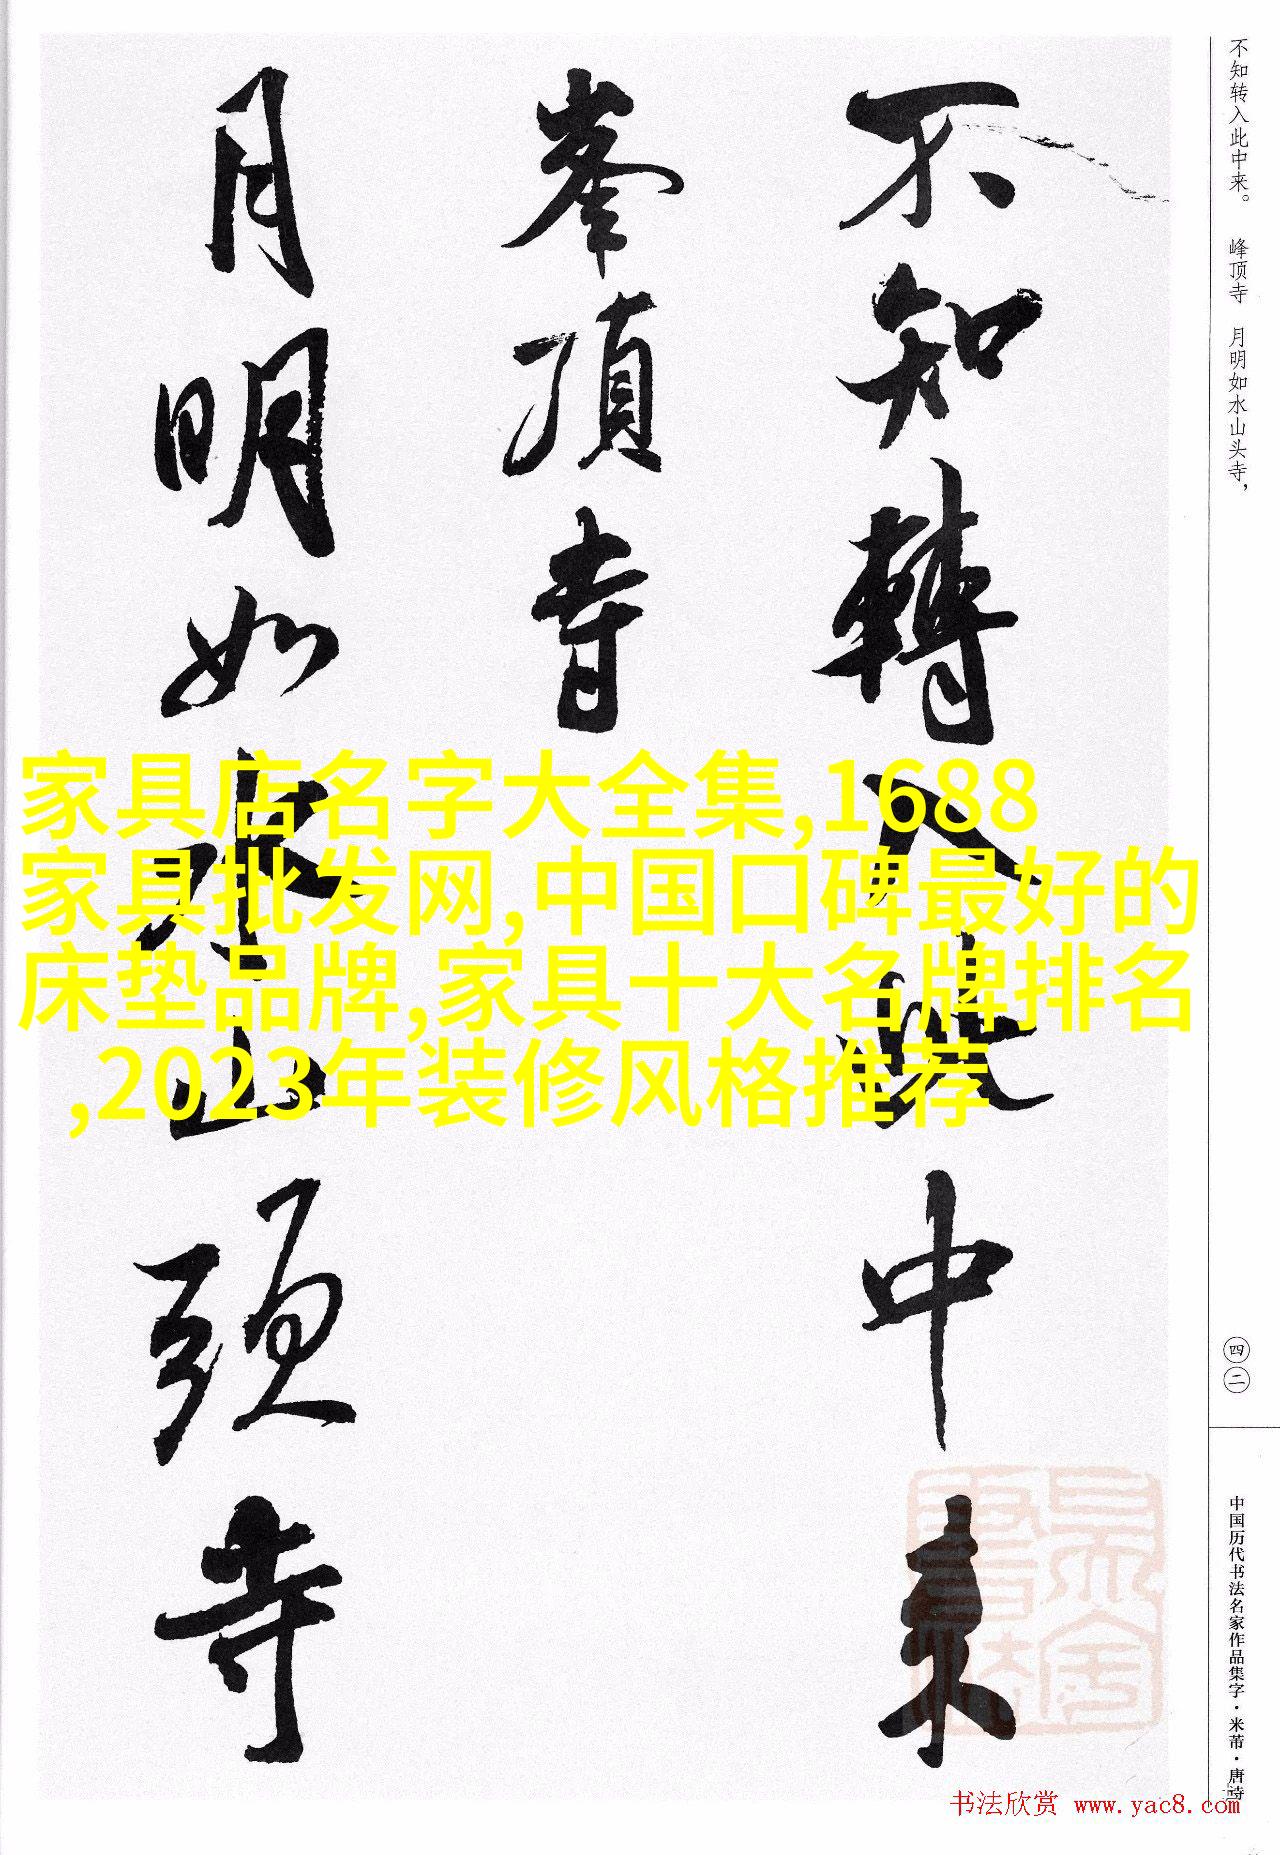 不知轉入此中来
峯頂寺
月明如水山頭寺
不知转入此中来。 峰顶寺 月明如水山头寺，
四二
中国历代书法名家作品集字·米芾·唐诗
家具店名字大全集,1688
家具批发网,中国口碑最好的
床垫品牌,家具十大名牌排名
,2023年装修风格推荐
书法欣赏 www.yac8.com